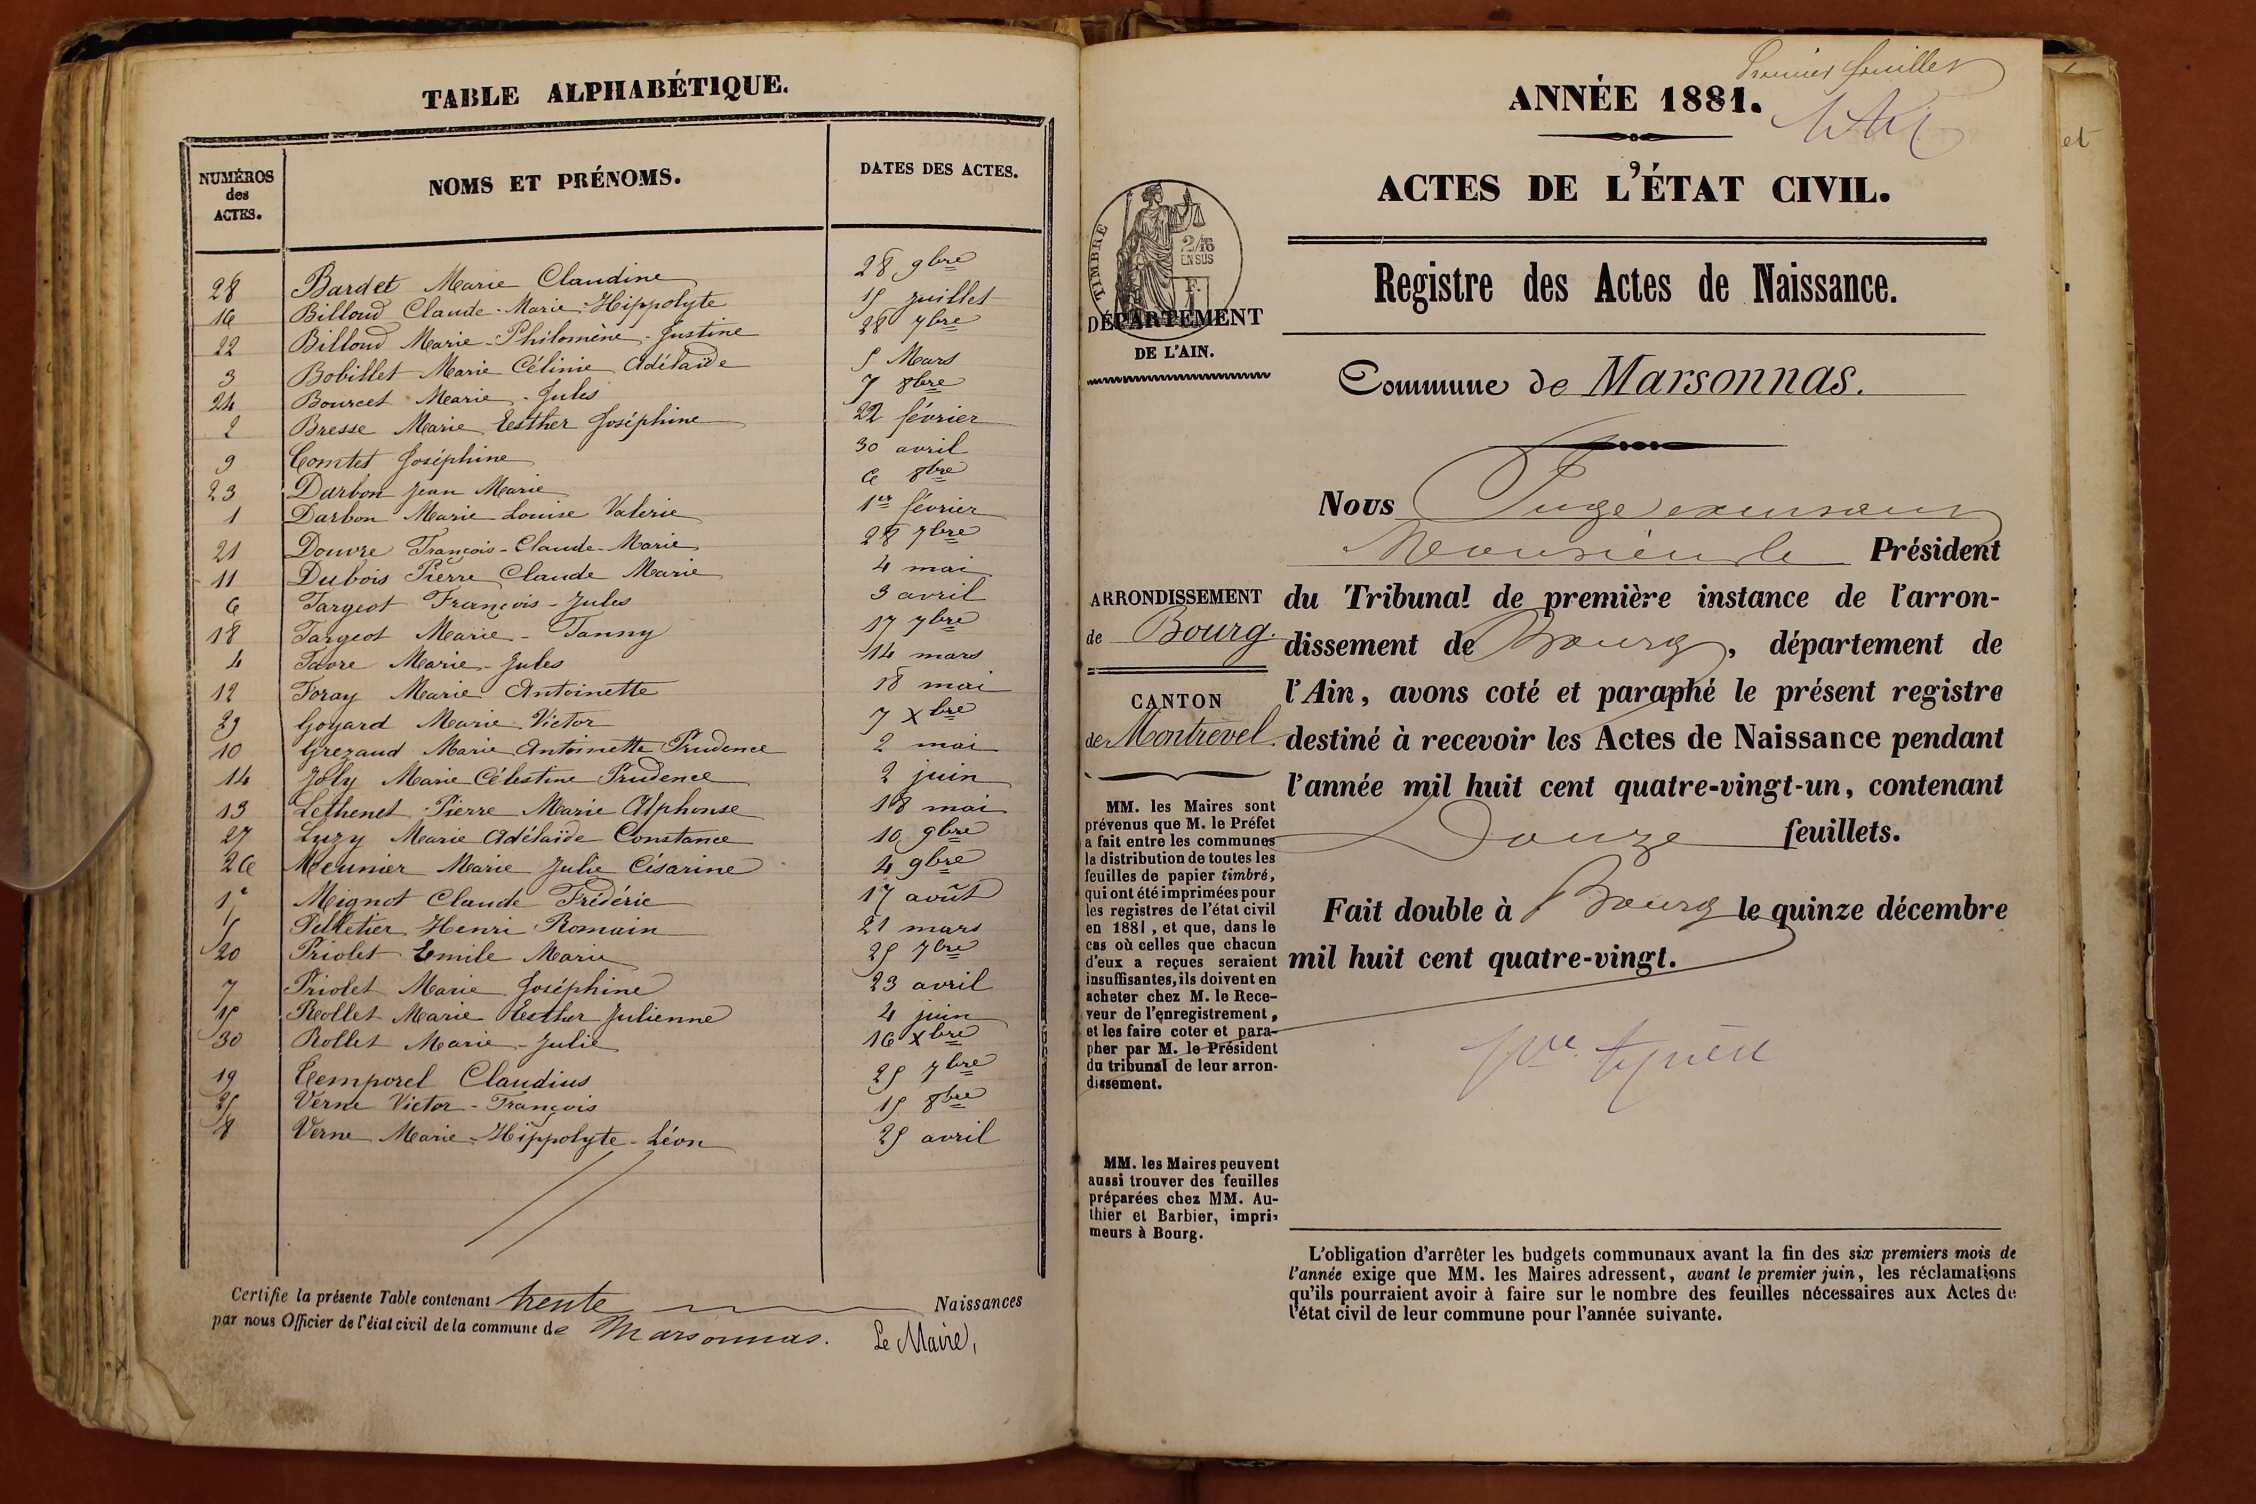 TABLE ALPHABÉTIQUE.
NUMÉROS des ACTES. NOMS ET PRÉNOMS. DATES DES ACTES.
28 Bardet Marie Claudine 28 9bre
16 Billoud Claude-Marie-Hippolyte 15 juillet
22 Billoud Marie-Philomène-Justine 28 7bre
3 Bobillet Marie Célinie Adélaïde 5 Mars
24 Bourcet Marie-Jules 7 8bre
2 Bresse Marie Esther Joséphine 22 février
9 Comtet Joséphine 30 avril
23 Darbon Jean Marie 6 8bre
1 Darbon Marie Louise Valérie 1er février
21 Douvre François-Claude-Marie 28 7bre
11 Dubois Pierre Claude Marie 4 mai
6 Fargeot François-Jules 3 avril
18 Fargeot Marie-Fanny 17 7bre
4 Favre Marie-Jules 14 mars
12 Foray Marie Antoinette 18 mai
29 Goyard Marie Victor 7 Xbre
10 Grezaud Marie Antoinette Prudence 2 mai
14 Joly Marie Célestine Prudence 2 juin
13 Lethenet Pierre Marie Alphonse 18 mai
27 Luzy Marie Adélaïde Constance 10 9bre
26 Meunier Marie Julie Césarine 4 9bre
Mignot Claude Frédéric 17 août
5 Pelletier Henri Romain 21 mars
20 Priolet Emile Marie 25 7bre
7 Priolet Marie Joséphine 23 avril
15 Rollet Marie Esther Julienne 4 juin
30 Rollet Marie-Julie 16 Xbre
19 Temporel Claudius 25 7bre
25 Verne Victor-François 15 8bre
8 Verne Marie-Hippolyte-Léon 25 avril
Certifie la présente Table contenant trente Naissances
par nous Officier de l'état civil de la commune de Marsonnas.
Le Maire,
Premier feuillet
ANNÉE 1881.
ACTES DE L'ÉTAT CIVIL.
TIMBRE
2/10 EN SUS
Registre des Actes de Naissance.
DÉPARTEMENT
DE L'AIN.
Commune de Marsonnas.
Nous Juge
Monsieur le Président
ARRONDISSEMENT
de Bourg.
CANTON
de Montrevel.
du Tribunal de première instance de l'arron-
dissement de Bourg, département de
l'Ain, avons coté et paraphé le présent registre
destiné à recevoir les Actes de Naissance pendant
l'année mil huit cent quatre-vingt-un, contenant
Douze feuillets.
Fait double à Bourg le quinze décembre
mil huit cent quatre-vingt.
MM. les Maires sont
prévenus que M. le Préfet
a fait entre les communes
la distribution de toutes les
feuilles de papier timbré,
qui ont été imprimées pour
les registres de l'état civil
en 1881, et que, dans le
cas où celles que chacun
d'eux a reçues seraient
insuffisantes, ils doivent en
acheter chez M. le Rece-
veur de l'enregistrement,
et les faire coter et para-
pher par M. le Président
du tribunal de leur arron-
dissement.
MM. les Maires peuvent
aussi trouver des feuilles
préparées chez MM. Au-
thier et Barbier, impri-
meurs à Bourg.
L'obligation d'arrêter les budgets communaux avant la fin des six premiers mois de
l'année exige que MM. les Maires adressent, avant le premier juin, les réclamations
qu'ils pourraient avoir à faire sur le nombre des feuilles nécessaires aux Actes de
l'état civil de leur commune pour l'année suivante.
et